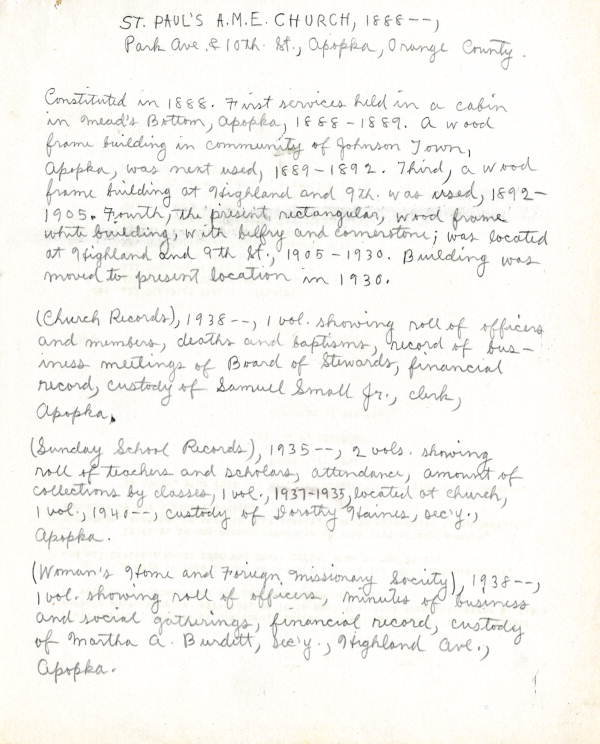 ST. PAUL'S A.M.E. CHURCH, 1888--,
Park Ave. & 10th. St., Apopka, Orange County.
Constituted in 1888. First services held in a cabin
in Mead's Bottom, Apopka, 1888-1889. A wood
frame building in community of Johnson Town,
Apopka, was next used, 1889-1892. Third, a wood
frame building at Highland and 9th. was used, 1892-
1905. Fourth, the present, rectangular, wood frame
white building, with belfry and cornerstone; was located
at Highland and 9th St., 1905-1930. Building was
moved to present location in 1930.
(Church Records), 1938--, 1 vol. showing roll of officers
and members, deaths and baptisms, record of bus-
iness meetings of Board of Stewards, financial
record, custody of Samuel Small Jr., clerk,
Apopka.
(Sunday School Records), 1935--, 2 vols. showing
roll of teachers and scholars, attendance, amount of
collections by classes, 1 vol., 1937-1935, located at church,
1 vol., 1940--, custody of Dorothy Haines, sec'y.,
Apopka.
(Woman's Home and Foriegn Missionary Society), 1938--,
1 vol. showing roll of officers, minutes of business
and social gatherings, financial record, custody
of Martha A. Burditt, sec'y., Highland Ave.,
Apopka.